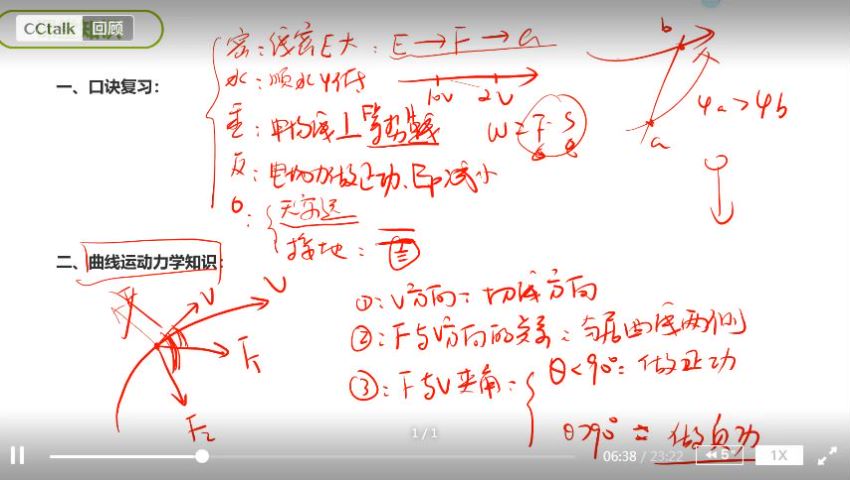 CCtalk 回顾
一、口诀复习:
密:线密E大:E→F→a
水:顺水φ低
10V 2V
垂:电场线⊥等势线
W=F·S
反:电场力做正功、Ep减小
0:无穷远
接地:
b
a
φa>φb
二、曲线运动力学知识:
V
V
F₁
F₂
①:V方向:切线方向
②:F与V方向的关系:分居曲线两侧
③:F与V夹角:
θ<90°:做正功
θ>90°:做负功
1/1
06:38 / 23:22
5
1X